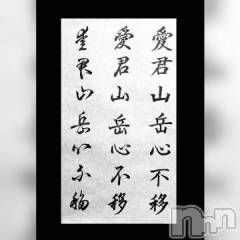 愛君山岳心不移
愛君山岳心不移
愛君山岳心不移